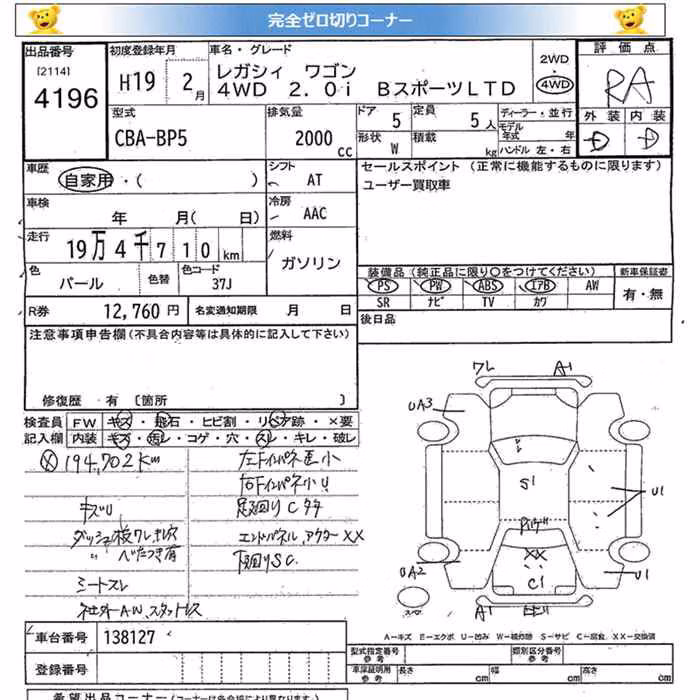 完全ゼロ切りコーナー
出品番号
[2114]
4196
初度登録年月
H19 2月
車名・グレード
レガシィ ワゴン
4WD 2.0i BスポーツLTD
2WD
4WD
評価点
RA
外装 内装
D D
型式
CBA-BP5
排気量
2000 cc
ドア
5
定員
5人
形状
W
積載
kg
ディーラー・並行
モデル年式 年
ハンドル 左・右
車歴
自家用・( )
シフト
AT
車検
年 月( 日)
冷房
AAC
走行
19万4千710km
燃料
ガソリン
色
パール
色替
色コード
37J
R券
12,760円
名変通知期限 月 日
セールスポイント (正常に機能するものに限ります)
ユーザー買取車
装備品(純正品に限り○をつけてください)
新車保証書
PS PW ABS エアB AW
SR ナビ TV カワ
有・無
後日品
注意事項申告欄(不具合内容等は具体的に記入して下さい)
修復歴 有 [箇所 ]
検査員記入欄
FW キズ・飛石・ヒビ割・リペア跡・×要
内装 キズ・汚レ・コゲ・穴・スレ・キレ・破レ
194,702Km
キズU
シートスレ
社外AW、スタッドレス
左Fインパネ小
右Fインパネ小U
足廻りCサタ
エンドパネル、アウターXX
下廻りSC
ワレ A1
UA3
S1
U1
XX
C1
UA2
U1
A1
A-キズ E-エクボ U-凹み W-補修跡 S-サビ C-腐食 XX-交換済
車台番号
138127
登録番号
型式指定番号
参考
類別区分番号
参考
車庫証明用
参考
長さ cm
幅 cm
高さ cm
希望出品コーナー